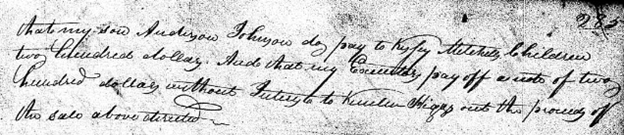 285
that my son Anderson Johnson do pay to Kysey Mitchels Children
two hundred dollars. And that my Executors pay off a note of two
hundred dollars without Interest to Higgs out the proceeds of
the sale above directed